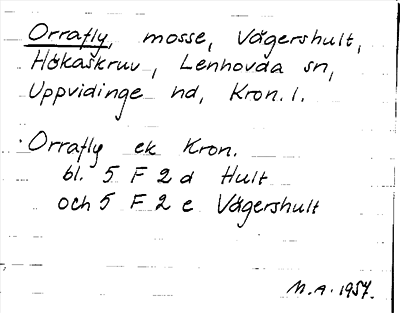 Orrafly, mosse, Vägershult,
Håkaskruv, Lenhovda sn,
Uppvidinge hd, Kron. l.
Orrafly ek Kron.
bl. 5 F 2 d Hult
och 5 F 2 e Vägershult
M.A. 1957.